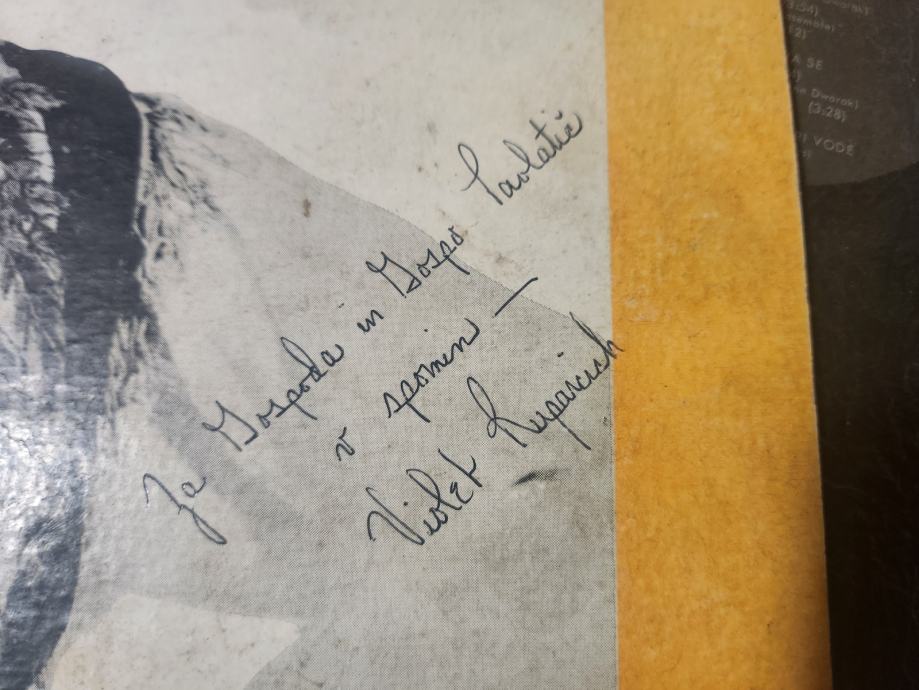 Za Gospoda in Gospo Pavlatič
v spomin —
Violet Ruparcich
3:54)
A SE
n Dworak)
(3:28)
PI VODE